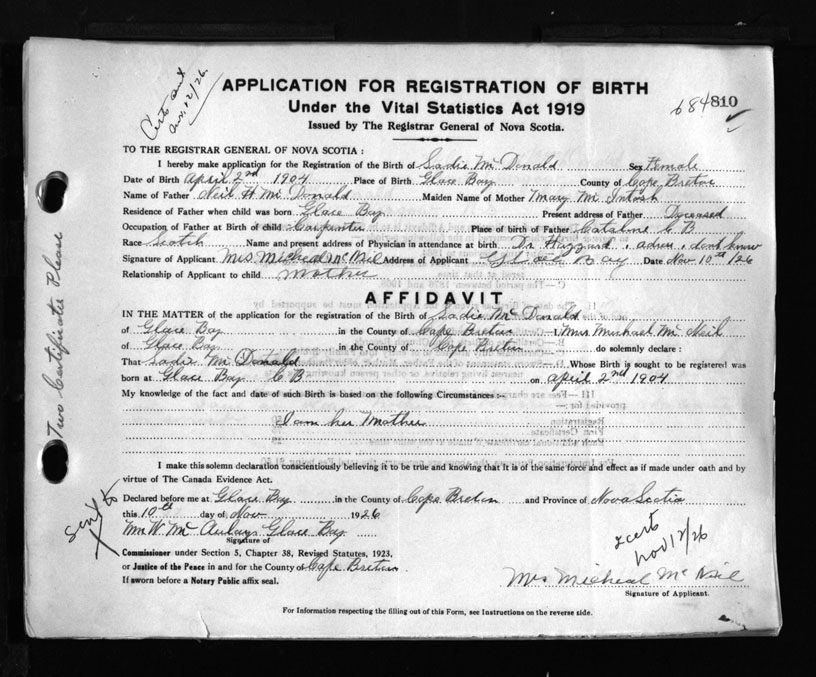 Certs sent
Nov. 12/26.
APPLICATION FOR REGISTRATION OF BIRTH
684810
Under the Vital Statistics Act 1919
Issued by The Registrar General of Nova Scotia.
TO THE REGISTRAR GENERAL OF NOVA SCOTIA :
I hereby make application for the Registration of the Birth of Sadie McDonald Sex Female
Date of Birth April 2nd 1904 Place of Birth Glace Bay County of Cape Breton
Name of Father Neil H McDonald Maiden Name of Mother Mary McIntosh
Residence of Father when child was born Glace Bay Present address of Father Deceased
Occupation of Father at Birth of child Carpenter Place of birth of Father Catalone C B
Race Scotch Name and present address of Physician in attendance at birth Dr , dont know
Signature of Applicant Mrs Micheal McNeil Address of Applicant Glace Bay Date Nov 10th/26
Relationship of Applicant to child mother
AFFIDAVIT
IN THE MATTER of the application for the registration of the Birth of Sadie McDonald
of Glace Bay in the County of Cape Breton I, Mrs Michael McNeil
of Glace Bay County of Cape Breton do solemnly declare :
That Sadie McDonald Whose Birth is sought to be registered was
born at Glace Bay C B on April 2nd 1904
My knowledge of the fact and date of such Birth is based on the following Circumstances :-
I am her Mother
I make this solemn declaration conscientiously believing it to be true and knowing that It is of the same force and effect as if made under oath and by
virtue of The Canada Evidence Act.
Declared before me at Glace Bay in the County of Cape Breton and Province of Nova Scotia
this 10th day of Nov 1926
Wm W. McAulay Glace Bay
Signature of
Commissioner under Section 5, Chapter 38, Revised Statutes, 1923,
or Justice of the Peace in and for the County of Cape Breton.
If sworn before a Notary Public affix seal.
2 certs
Nov 12/26
Mrs Micheal McNeil
Signature of Applicant.
For Information respecting the filling out of this Form, see Instructions on the reverse side.
Two Certificates Please
sent to